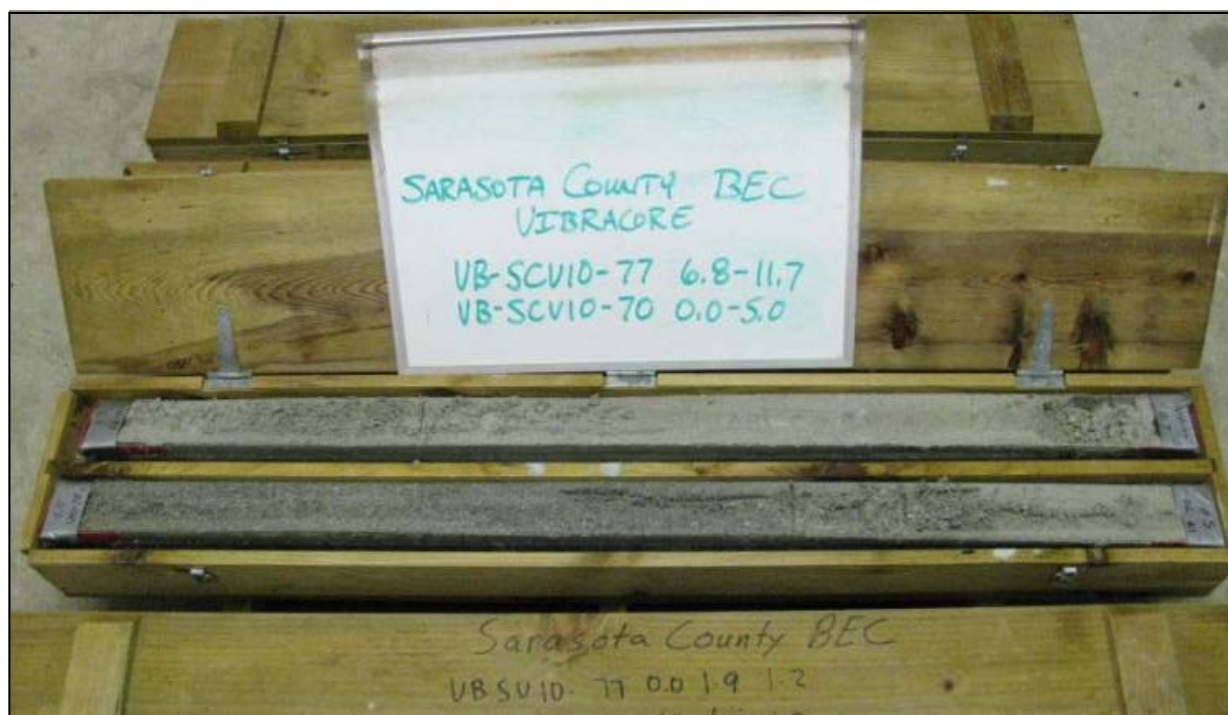 SARASOTA COUNTY BEC
VIBRACORE
VB-SCV10-77 6.8-11.7
VB-SCV10-70 0.0-5.0
Sarasota County BEC
VBSV10-77 0.0 1.9 1.2